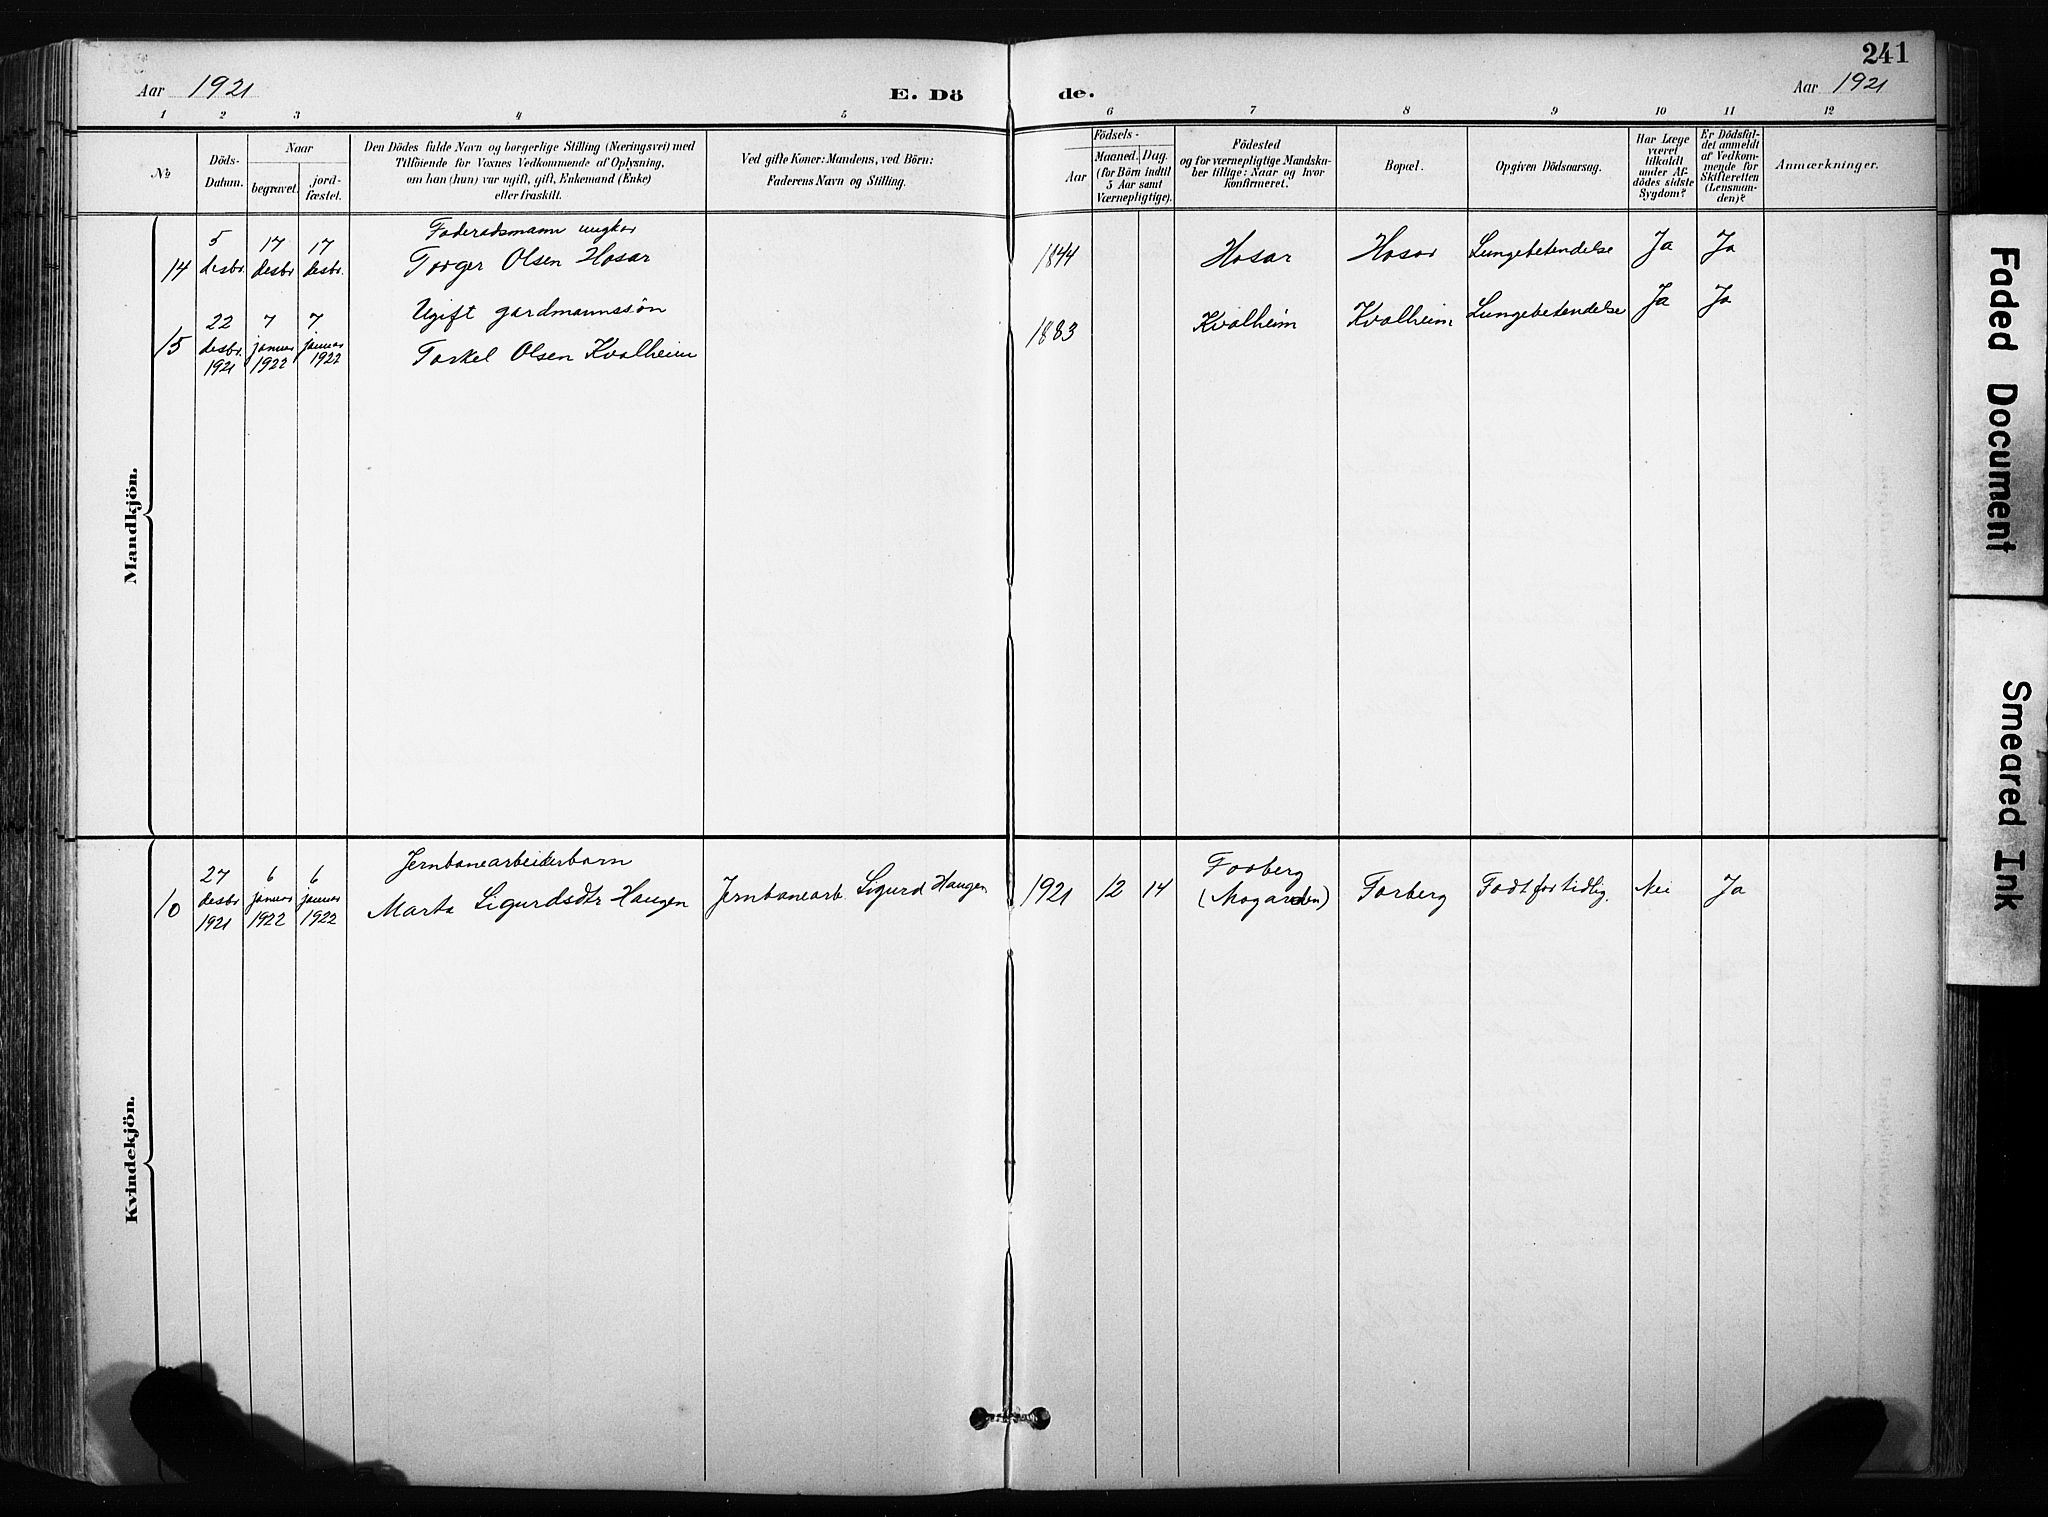 241
Aar 1921
E. Dö
de.
Aar 1921
1 2 3 4 5 6 7 8 9 10 11 12
№
Döds-
Datum.
Naar
begravet.
jord-
fæstet.
Den Dödes fulde Navn og borgerlige Stilling (Næringsvei) med
Tilföiende for Voxnes Vedkommende af Oplysning,
om han (hun) var ugift, gift, Enkemand (Enke)
eller fraskilt.
Ved gifte Koner: Mandens, ved Börn:
Faderens Navn og Stilling.
Födsels-
Aar
Maaned. Dag.
(for Börn indtil
5 Aar samt
Værnepligtige).
Födested
og for værnepligtige Mandska-
ber tillige: Naar og hvor
konfirmeret.
Bopæl.
Opgiven Dödsaarsag.
Har Læge
været
tilkaldt
under Af-
dödes sidste
Sygdom?
Er Dödsfal-
det anmeldt
af Vedkom-
mende for
Skifteretten
(Lensman-
den)?
Anmærkninger.
Mandkjön.
14
5
desbr.
17
desbr
17
desbr.
Foderadsmann ungkar
Torger Olsen Hosar
1844
Hosar
Hosar
Lungebetendelse
Ja
Ja
15
22
desbr.
1921
7
januar
1922
7
januar
1922
Ugift gardmannssön
Torkel Olsen Kvalheim
1883
Kvalheim
Kvalheim
Lungebetendelse
Ja
Ja
Kvindekjön.
10
27
desbr
1921
6
januar
1922
6
januar
1922
Jernbanearbeiderbarn
Marta Sigurdsdtr Haugen
Jernbanearb. Sigurd Haugen
1921
12
14
Forberg
(Mogarden)
Forberg
Fodt for tidlig.
Nei
Ja
Faded Document
Smeared Ink